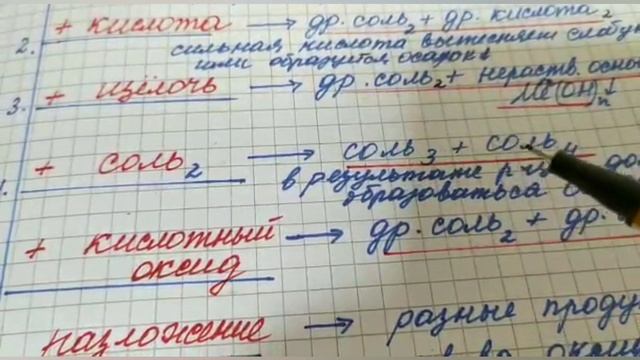 2. + кислота → др. соль₂ + др. кислота₂
сильная кислота вытесняет слабу
или образуется осадок↓
3. + щёлочь → др. соль₂ + нераств. осно
Me(OH)n↓
+ соль₂ → соль₃ + соль₄
в результате р-ц
образоваться
+ кислотный оксид → др. соль₂ + др.
разложение → разные проду